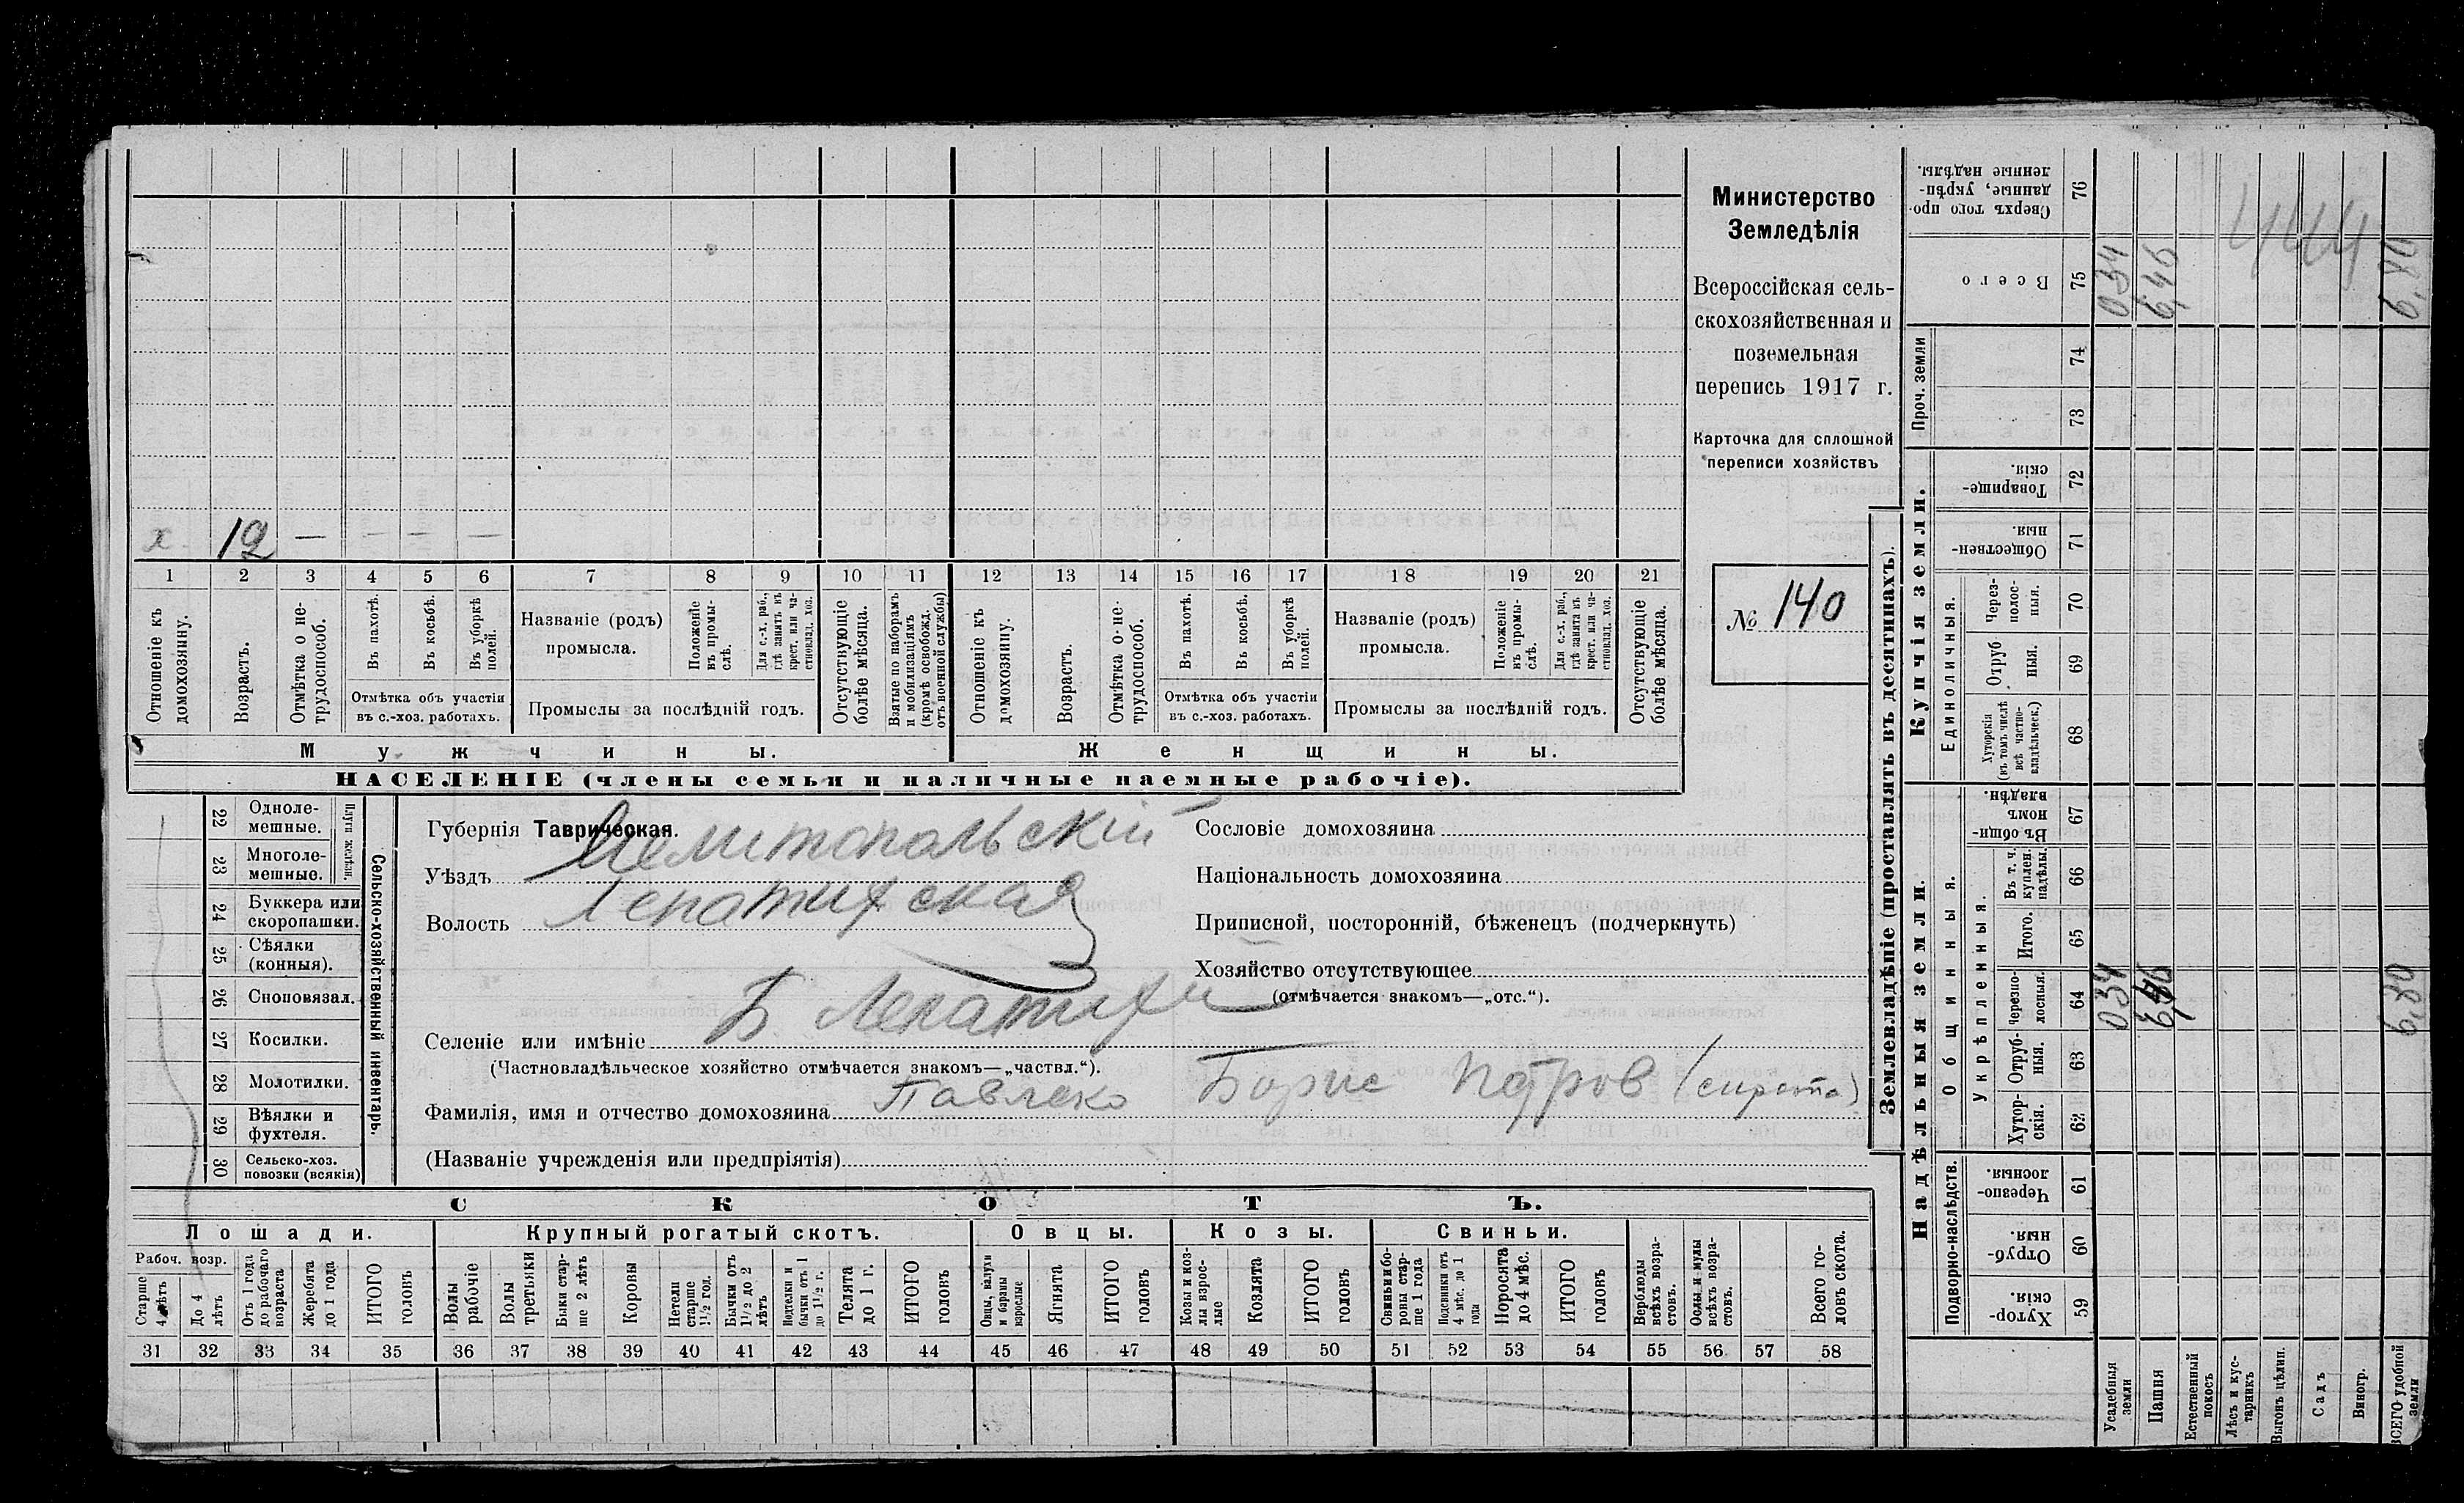 х 12 — — — —
1 2 3 4 5 6 7 8 9 10 11 12 13 14 15 16 17 18 19 20 21
Отношеніе къ домохозяину.
Возрастъ.
Отмѣтка о нетрудоспособ.
Въ пахотѣ.
Въ косьбѣ.
Въ уборкѣ полей.
Отмѣтка объ участіи
въ с.-хоз. работахъ.
Названіе (родъ)
промысла.
Положеніе въ промыслѣ.
Для с.-х. раб., гдѣ занятъ въ крест. или частновлад. хоз.
Промыслы за послѣдній годъ.
Отсутствующіе болѣе мѣсяца.
Взятые по наборамъ и мобилизаціямъ (кромѣ освобожд. отъ военной службы)
Отношеніе къ домохозяину.
Возрастъ.
Отмѣтка о не-трудоспособ.
Въ пахотѣ.
Въ косьбѣ.
Въ уборкѣ полей.
Отмѣтка объ участіи
въ с.-хоз. работахъ.
Названіе (родъ)
промысла.
Положеніе въ промыслѣ.
Для с.-х. раб., гдѣ занята въ крест. или частновлад. хоз.
Промыслы за послѣдній годъ.
Отсутствующіе болѣе мѣсяца.
Мужчины.
Женщины.
НАСЕЛЕНІЕ (члены семьи и наличные наемные рабочіе).
Министерство
Земледѣлія
Всероссійская сель-
скохозяйственная и
поземельная
перепись 1917 г.
Карточка для сплошной
переписи хозяйствъ
№ 140
22 Одноле-
мешные.
23 Многоле-
мешные.
Плуги желѣзн.
24 Буккера или
скоропашки.
25 Сѣялки
(конныя).
26 Сноповязал.
27 Косилки.
28 Молотилки.
29 Вѣялки и
фухтеля.
30 Сельско-хоз.
повозки (всякія)
Сельско-хозяйственный инвентарь.
Губернія Таврическая.
Уѣздъ Мелитопольскій
Волость Лепатихская
Селеніе или имѣніе Б Лепатиха
(Частновладѣльческое хозяйство отмѣчается знакомъ—„частвл.“).
Фамилія, имя и отчество домохозяина Павлеко Борис Петров (сирота)
(Названіе учрежденія или предпріятія)
Сословіе домохозяина
Національность домохозяина
Приписной, посторонній, бѣженецъ (подчеркнуть)
Хозяйство отсутствующее
(отмѣчается знакомъ—„отс.“).
СКОТЪ.
Лошади. Крупный рогатый скотъ. Овцы. Козы. Свиньи.
Рабоч. возр.
Старше 4 лѣтъ
До 4 лѣтъ
Отъ 1 года до рабочаго возраста
Жеребята до 1 года
ИТОГО головъ
Волы рабочіе
Волы третьяки
Быки старше 2 лѣтъ
Коровы
Нетели старше 1½ год.
Бычки отъ 1½ до 2 лѣтъ
Подтелки и бычки отъ 1 до 1½ г.
Телята до 1 г.
ИТОГО головъ
Овцы, валухи и бараны взрослые
Ягнята
ИТОГО головъ
Козы и козлы взрослые
Козлята
ИТОГО головъ
Свиньи и бороны старше 1 года
Подсвинки отъ 4 мѣс. до 1 года
Поросята до 4 мѣс.
ИТОГО головъ
Верблюды всѣхъ возрастовъ.
Ослы и мулы всѣхъ возрастовъ.
Всего головъ скота.
31 32 33 34 35 36 37 38 39 40 41 42 43 44 45 46 47 48 49 50 51 52 53 54 55 56 57 58
Землевладѣніе (проставлять въ десятинахъ).
Купчія земли.
Надѣльныя земли.
Сверхъ того проданные, укрѣпленные надѣлы. 76
444
Всего 75 034 6,46 6,80
Проч. земли 74 73
Товарищескія. 72
Общественныя. 71
Единоличныя.
Черезполосныя. 70
Отрубныя. 69
Хуторскія (въ томъ числѣ всѣ частновладѣльческ.) 68
Общинныя.
Въ общинномъ владѣн. 67
Укрѣпленныя.
Въ т. ч. куплен. надѣлы. 66
Итого. 65
Черезполосныя. 64 034 6,46 6,80
Отрубныя. 63
Хуторскія. 62
Подворно-наслѣдств.
Черезполосныя. 61
Отрубныя. 60
Хуторскія. 59
Усадебныя земли
Пашня
Естественный покосъ
Лѣсъ и кустарникъ
Выгонъ цѣлин.
Садъ
Виногр.
ВСЕГО удобной земли